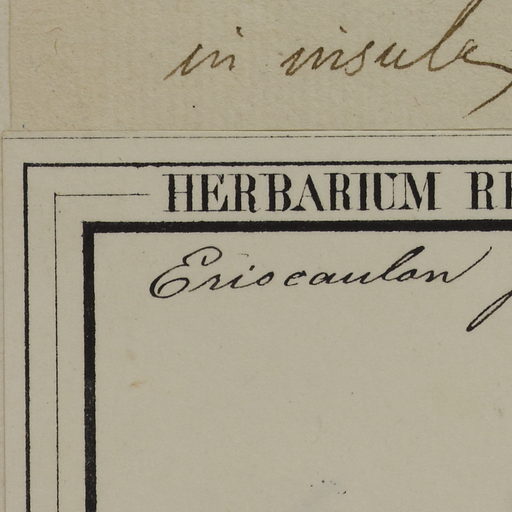 in insula
HERBARIUM
Eriocaulon